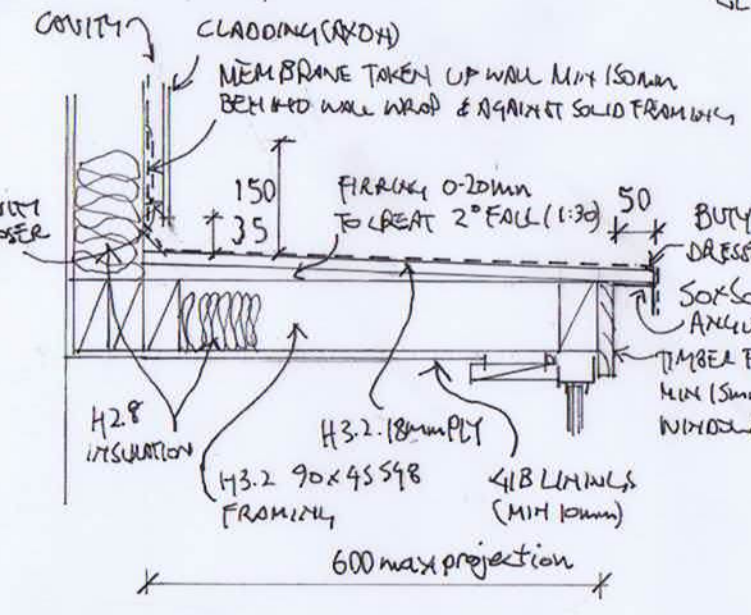 CAVITY
CLADDING (AXON)
MEMBRANE TAKEN UP WALL MIN 150mm
BEHIND WALL WRAP & AGAINST SOLID FRAMING
150
35
FIRRING 0-20mm
TO CREAT 2° FALL (1:30)
50
VITY
OSER
BUTY
DRESS
50x50
ANGL
TIMBER F
MIN 15mm
WINDOW
H2.8
INSULATION
H3.2 90x45 SG8
FRAMING
H3.2. 18mm PLY
GIB LININGS
(MIN 10mm)
600 max projection